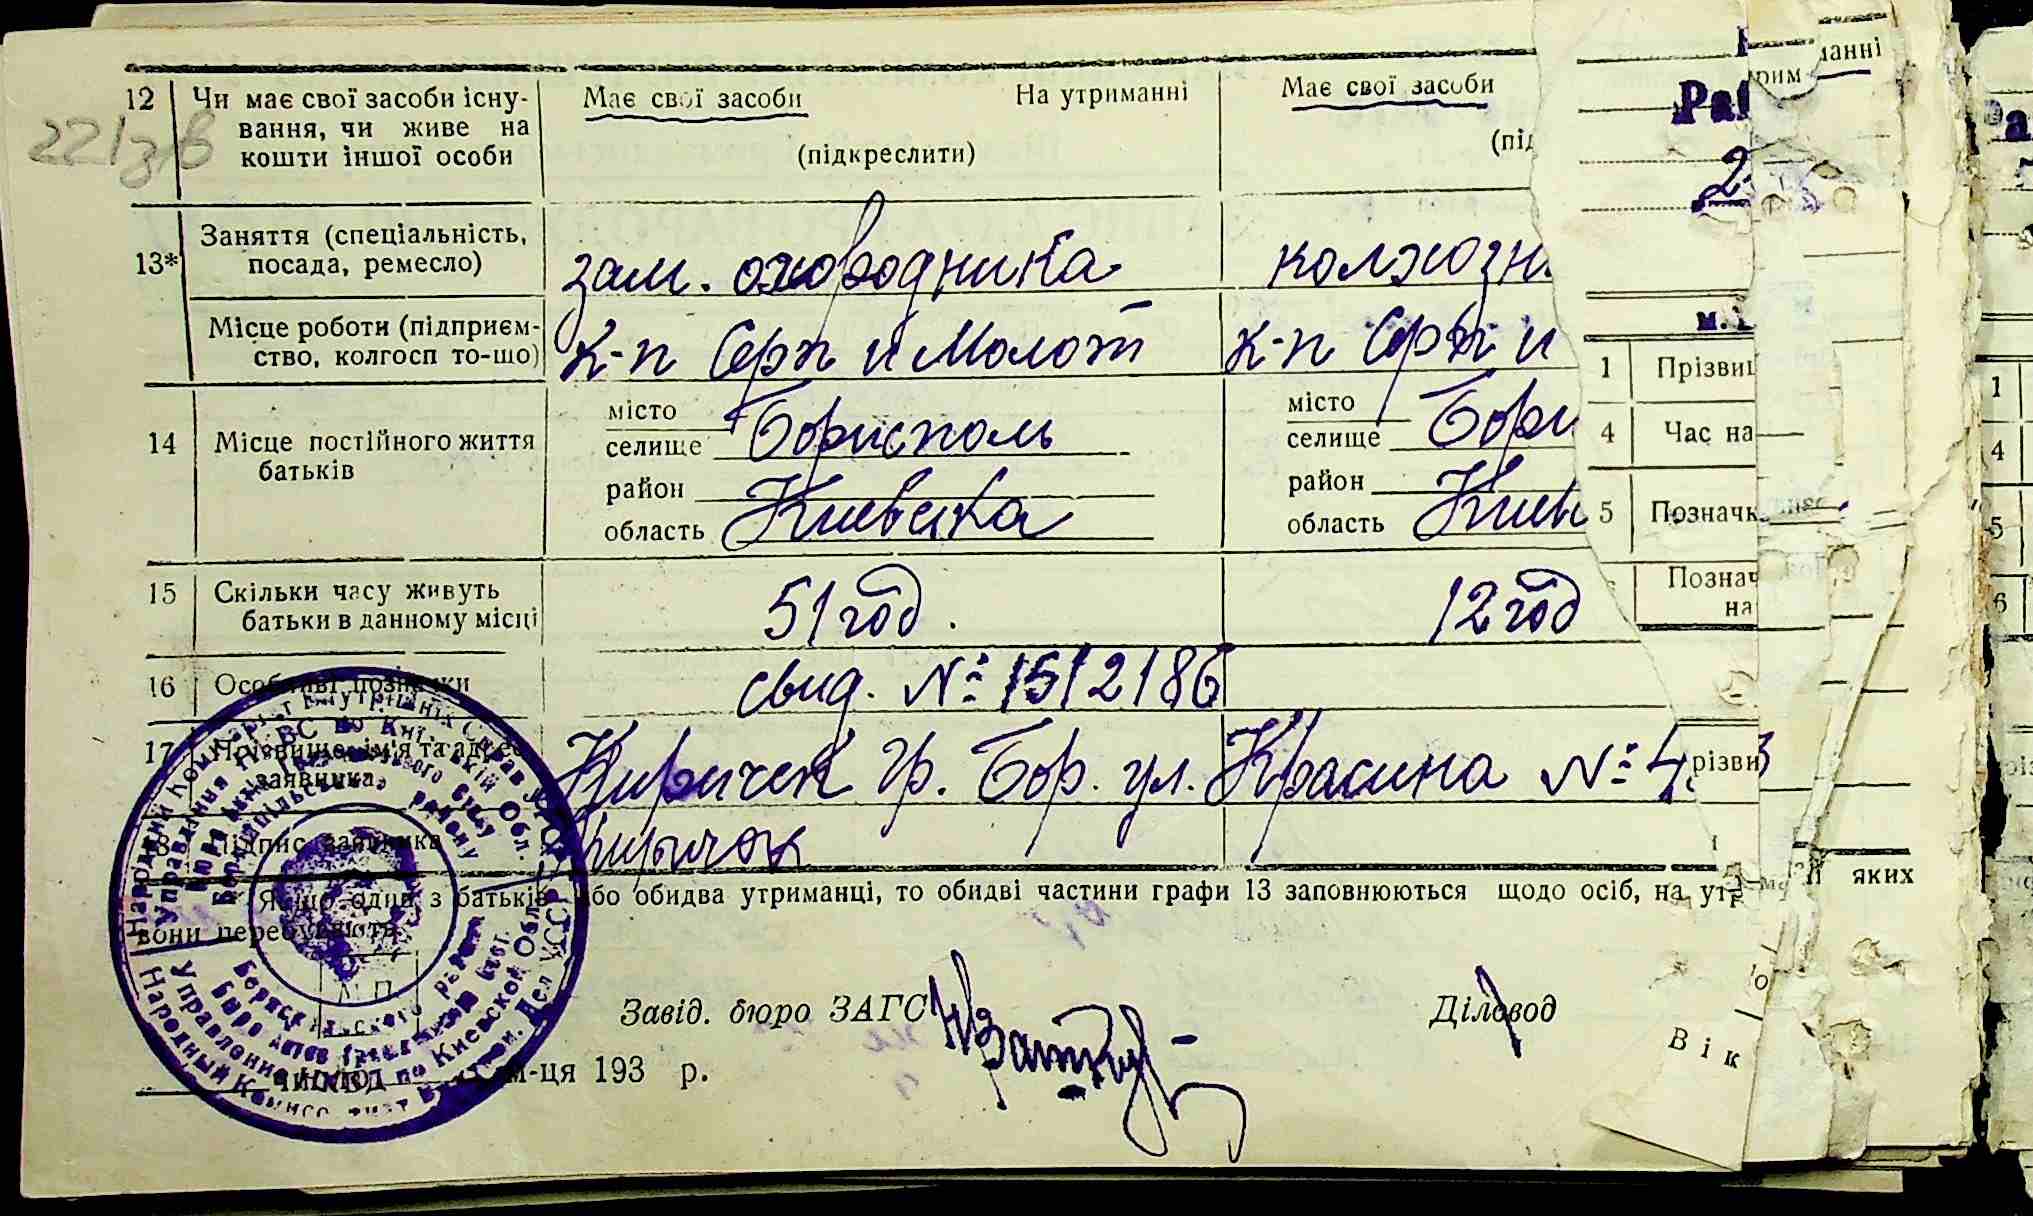 12 Чи має свої засоби існу- Має свої засоби На утриманні Має свої засоби
вання, чи живе на
кошти іншої особи (підкреслити) (під
221зв
Заняття (спеціальність,
13* посада, ремесло) зам. оховодника колхозн
Місце роботи (підприєм-
ство, колгосп то-що) К-п Серп и Молот К-п Серп и
14 Місце постійного життя
батьків
місто
селище Борисполь
район
область Киевска
місто
селище Бори
район
область Киев
15 Скільки часу живуть
батьки в данному місці 51 год. 12 год
16 Особливі позначки свид. № 1512186
17 Прізвище, ім'я та адреса
заявника Киричек Гр. Бор. ул. Красина №
18 Підпис заявника Киричек
Якщо один з батьків або обидва утриманці, то обидві частини графи 13 заповнюються щодо осіб, на
яких
вони перебувають
М.П.
Завід. бюро ЗАГС Діловод
м-ця 193 р.
1 Прізвищ
4 Час на
5 Позначк
Познач
на
різви
Вік
анні
1
4
5
6
Народний Комісаріат Внутрішніх Справ УРСР
Управління НКВС по Київській Обл.
Бориспільського району
Народный Комиссариат Внутрен. Дел УССР
Управление НКВД по Киевской Обл.
Бюро актов гражданского сост.
Бориспольского района